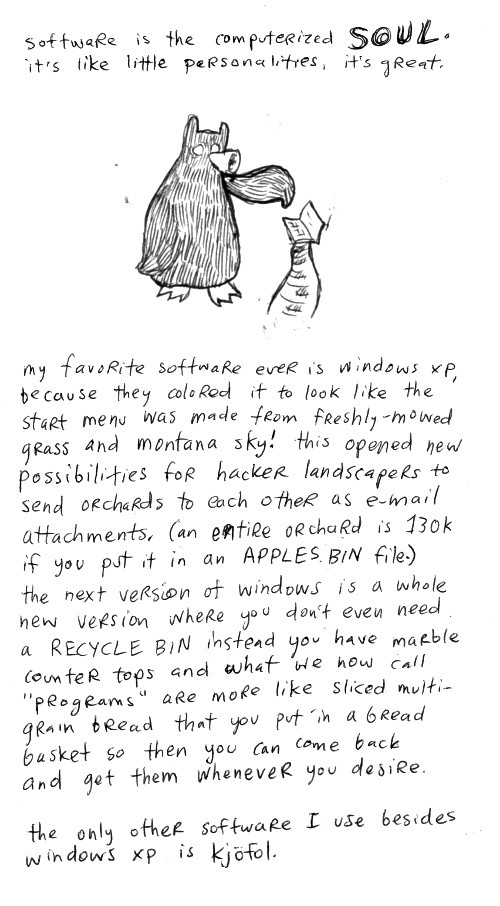 software is the computerized SOUL.
it's like little personalities, it's great.
my favorite software ever is windows xp,
because they colored it to look like the
start menu was made from freshly-mowed
grass and montana sky! this opened new
possibilities for hacker landscapers to
send orchards to each other as e-mail
attachments. (an entire orchard is 130k
if you put it in an APPLES.BIN file.)
the next version of windows is a whole
new version where you don't even need
a RECYCLE BIN instead you have marble
counter tops and what we now call
"programs" are more like sliced multi-
grain bread that you put in a bread
basket so then you can come back
and get them whenever you desire.
the only other software I use besides
windows xp is kjöfol.